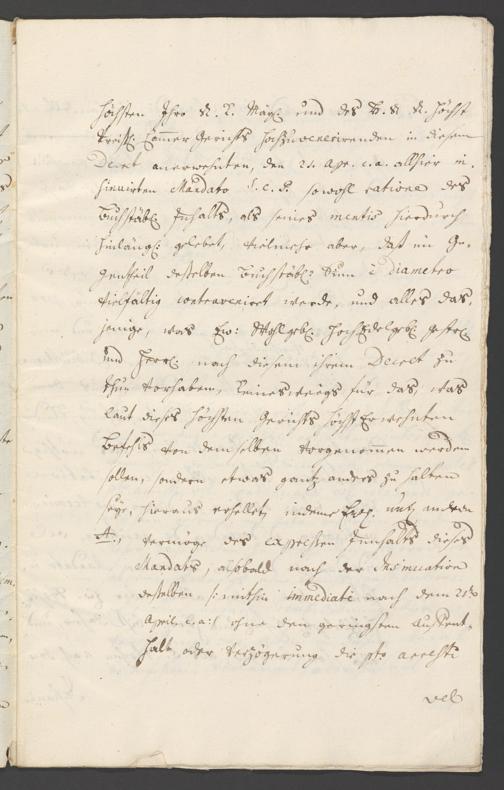 höchsten Ihro K. K. Maÿ. und des H. R. R. Höchst
Preißl. Cammer Gerichts hochzuvenerirenden in diesem
Decret anerwehnten, den 21. Apr. c. a. allhier in-
sinuirten Mandato S. C. P. sowohl ratione des
Buchstäbl. Inhalts, als seines mentis hierdurch
hinlängl. gelebet, vielmehr aber, daß im Ge-
gentheil desselben buchstäbl. Sinn è diametro
vielfältig contraveniret werde, und alles das-
jenige, was Ew: Wohlgeb. HochEdelgeb. Gestr.
und Herrl. nach diesem ihrem Decret zu
thun vorhaben, keineswegs für das, was
laut dieses höchsten Gerichts höchst Erwehnten
Befehls von demselben vorgenommen werden
sollen, sondern etwas gantz anders zu halten
seye, hieraus erhellet, indeme
vermöge des expressen Innhalts dieses
Mandats, alsobald nach der Insinuation
desselben /: mithin immediatè nach dem 21ten
April. c. a :/ ohne den geringsten Auffent-
halt oder Verzögerung die pto arresti
vel